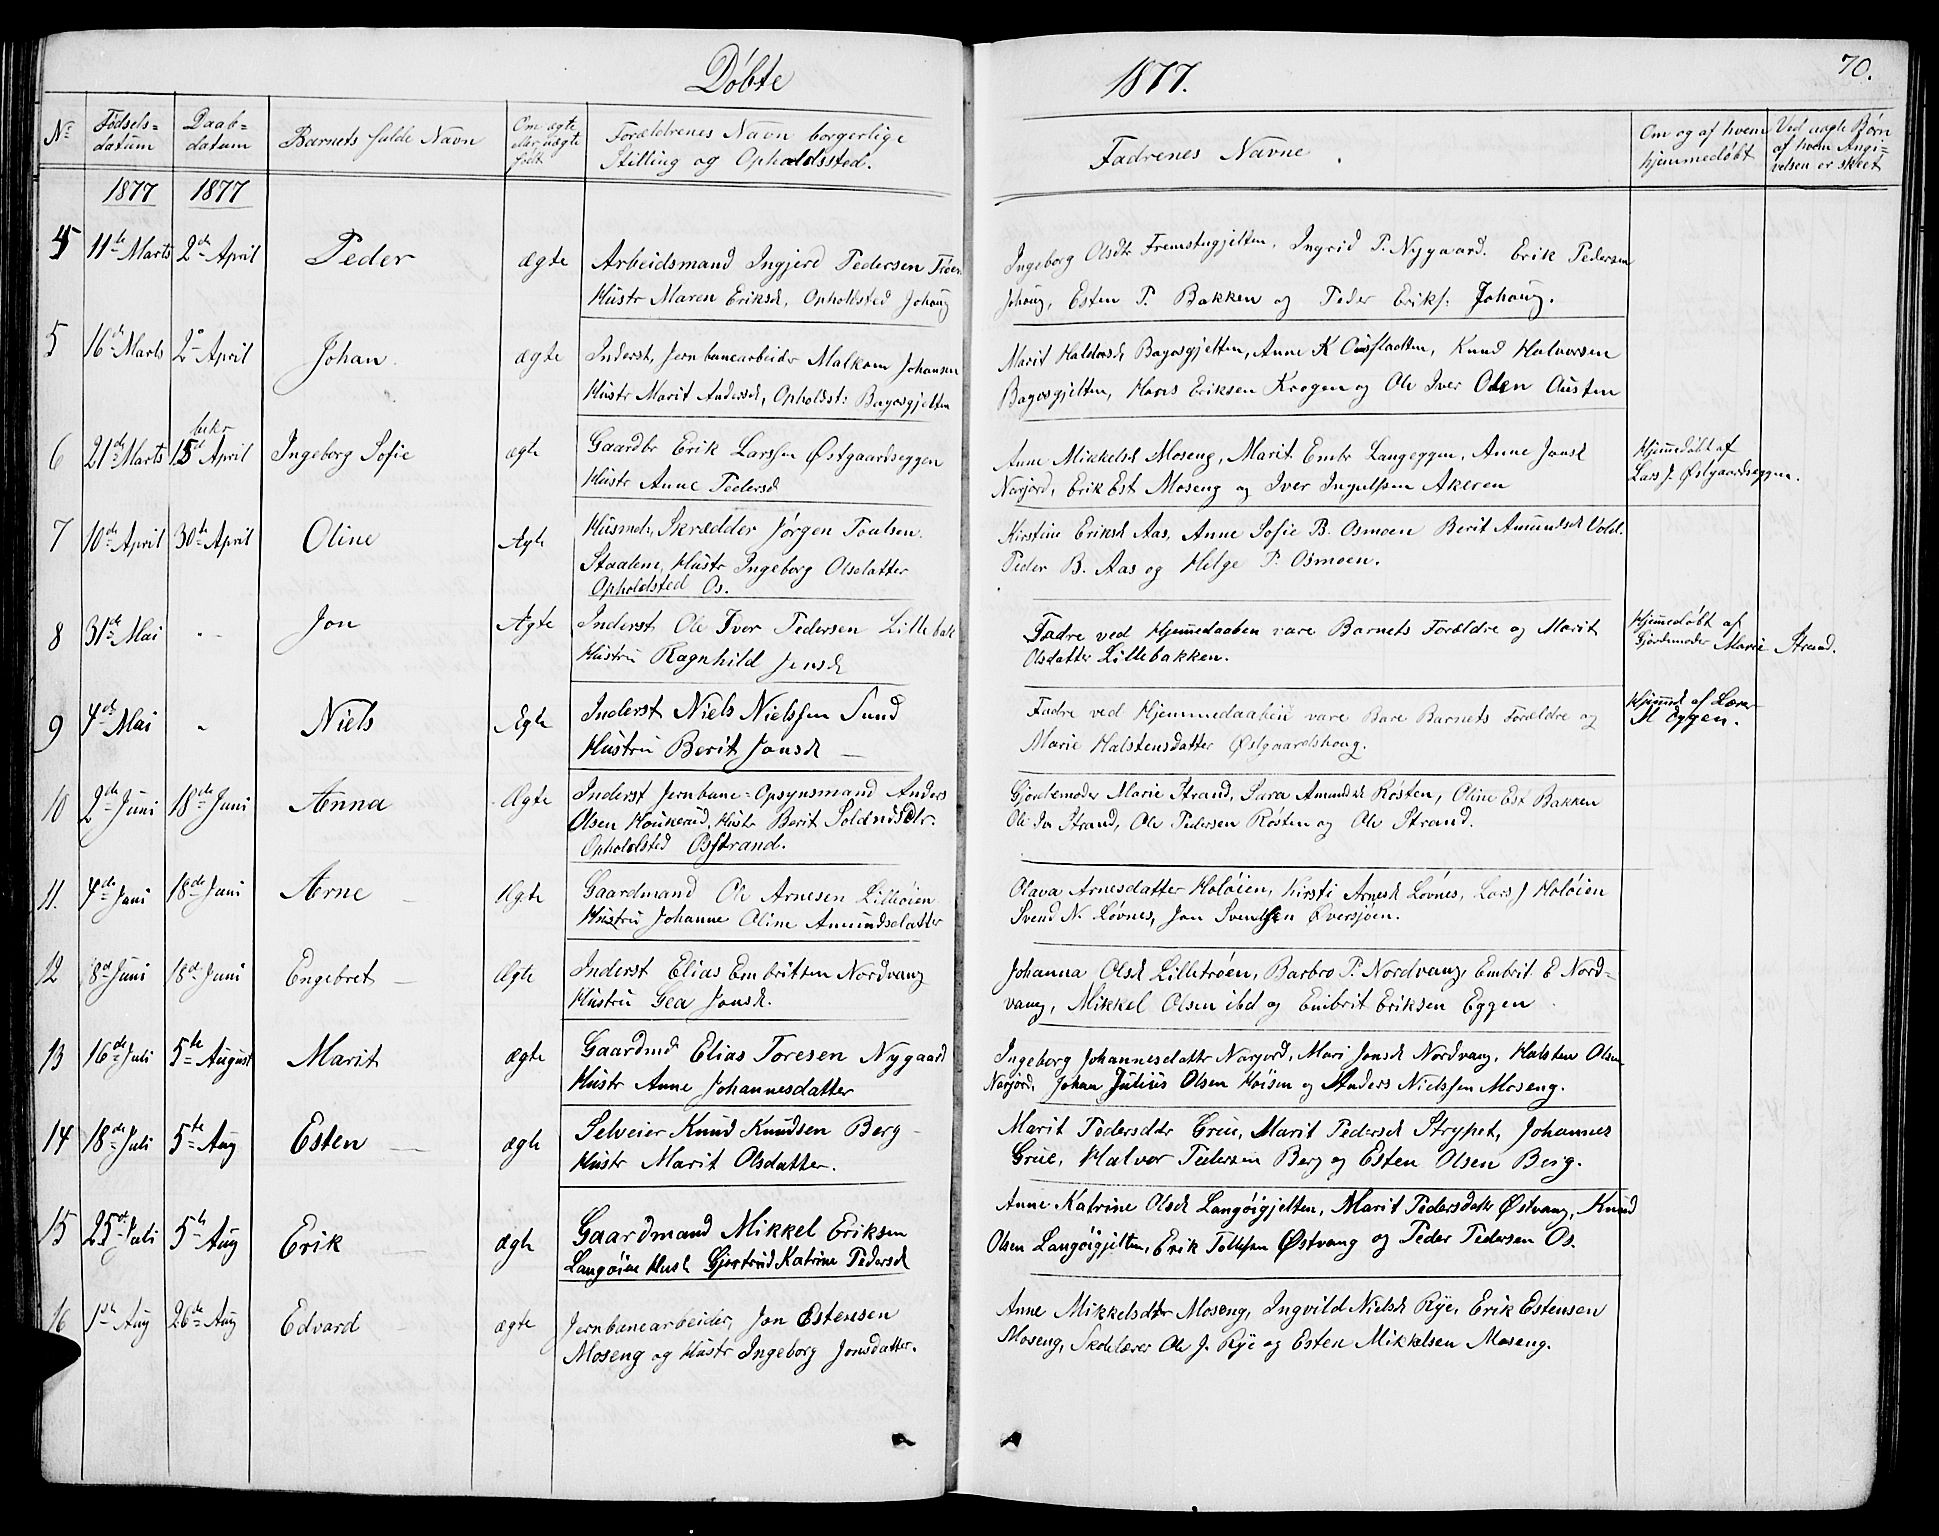 Døbte 1877. 70.
No Fødsels= datum Daab= datum Barnets fulde Navn Om ægte eller uægte født Forældrenes Navn borgerlige Stilling og Opholdssted. Fadrenes Navne. Om og af hvem hjemmedøbt Ved uægte Børn af hvem Angi= velsen er skeet
1877 1877
4 11te Marts 2den April Peder ægte Arbeidsmand Ingjerd Pedersen
Hustr Maren Eriksd, Opholdsted Johoug
Ingeborg Olsdtr Fremstugjelten, Ingrid P. Nygaard. Erik Pedersen
Johoug, Esten P. Bakken og Peder Eriks: Johoug.
5 16de Marts 2den April Johan. ægte Inderst, Jernbanearbeider Malkom Johansen
Hustr Marit Andersd, Opholdst: Bagosgjelten
Marit Haldosd Bagosgjelten, Anne K Knud Halvorsen
Bagosgjelten, Hans Eriksen Krogen og Ole Iver Olen Austen
bekr
6 21de Marts 15de April Ingeborg Sofie ægte Gaardbr Erik Larssen Østgaardseggen
Hustr Anne Pedersd
Anne Mikkelsd Moseng, Marit Embr Langeggen, Anne Jonsd
Narjord, Erik Est Moseng og Iver Ingulfsen Akeren
Hjemmedøbt af
Lars J. Østgaardseggen.
7 10de April 30te April Oline Ægte Husmd, Skrædder Jørgen Paulsen
Staalen, Hustr Ingeborg Olsdatter
Opholdsted Os.
Kirstine Eriksd Aas, Anne Sofie B. Osmoen Berit Amundsd Vold.
Peder B. Aas og Helge P. Osmoen.
8 31de Mai " Jon Ægte Inderst Ole Iver Pedersen Lillebak
Hustru Ragnhild Jensd
Fadre ved Hjemmedaaben vare Barnets Forældre og Marit
Olsdatter Lillebakken.
Hjemmedøbt af
Gjordemoder Marie Strand.
9 4de Mai " Niels Ægte Inderst Niels Nielssen Sund
Hustru Berit Jonsd
Fadre ved Hjemmedaaben vare Bare Barnets Forældre og
Marie Halstensdatter Østgaardshoug.
Hjemmd af Lærer
H Eggen.
10 2de Juni 18de Juni Anna Ægte Inderst Jernbane-Opsynsmand Anders
Olsen Houkerud, Hustr Berit
Opholdsted Osstrand.
Gjordemoder Marie Strand, Sara Amundsd Røsten, Oline Est Bakken
Ole Iv Strand, Ole Pedersen Røsten og Ole Strand.
11. 4de Juni 18de Juni Arne Ægte Gaardmand Ole Arnesen Lilleøien
Hustru Johanne Oline Amundsdatter
Olava Arnesdatter Holøien, Kirsti Arnesd Løvnes, Lars J Holøien
Svend N. Løvnes, Jon Svendsen Øversjøen.
12 8d Juni 18de Juni Engebret Ægte Inderst Elias Embritsen Nordvang
Hustru Gea Jonsd.
Johanna Olsd Lilletrøen, Barbro P. Nordvang, Embrit E Nord=
vang, Mikkel Olsen ibd og Embrit Eriksen Eggen.
13 16de Juli 5te August Marit ægte Gaardmd Elias Toresen Nygaard
Hustr Anne Johannesdatter
Ingeborg Johannesdattr Narjord, Mari Jonsd Nordvang, Halsten Olsen
Narjord, Johan Julius Olsen Høisen og Anders Nielssen Moseng.
14 18de Juli 5te Aug Esten ægte Selveier Knud Knudsen Berg
Hustr Marit Olsdatter.
Marit Pedersdtr Grue, Marit Pedersd Strypet, Johannes
Grue, Halvor Pedersen Berg og Esten Olsen Berg.
15 25de Juli 5te Aug Erik ægte Gaardmand Mikkel Eriksen
Langøien Hust Gjertrud Katrine Pedersd
Anne Katrine Olsd Langøigjelten, Marit Pedersdatr Østvang, Knud
Olsen Langøigjelten, Erik Tollefsen Østvang og Peder Pedersen Os.
16 1ste Aug 26de Aug Edvard ægte Jernbanearbeider, Jon Estensen
Moseng og Hustr Ingeborg Jonsdatter.
Anne Mikkelsdtr Moseng, Ingvild Nielsd Rye, Erik Estensen
Moseng, Skolelærer Ole J. Rye og Esten Mikkelsen Moseng.